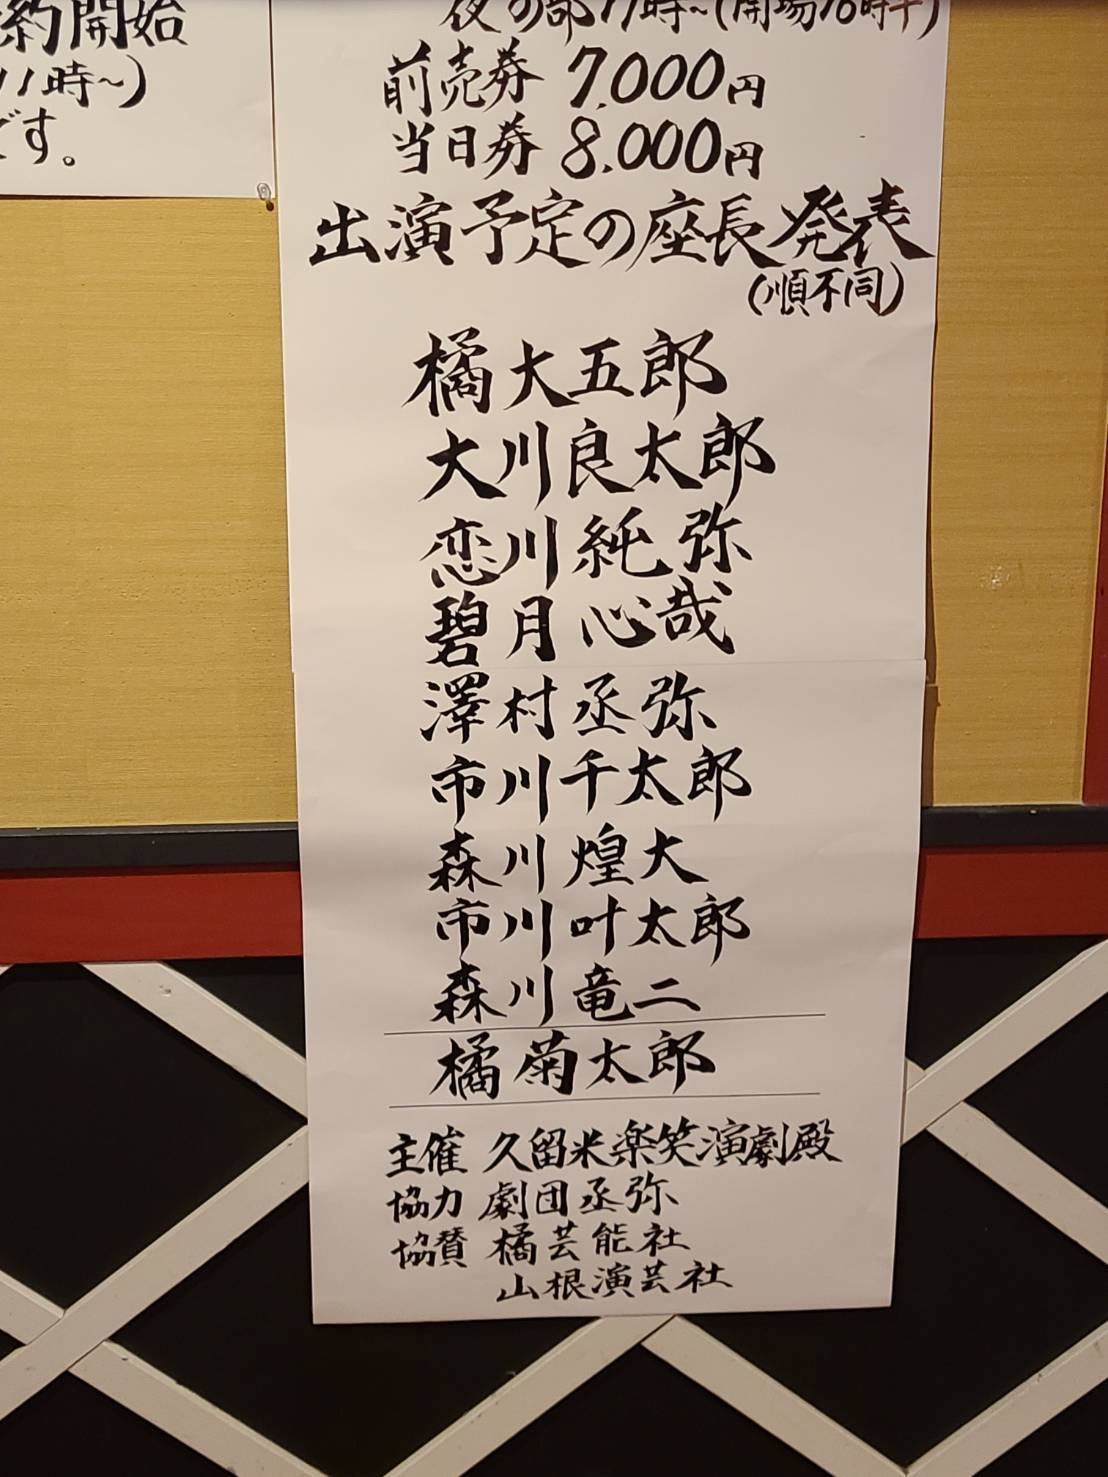 約開始
11時~)
です。
夜の部17時~(開場16時半)
前売券 7,000円
当日券 8,000円
出演予定の座長発表
(順不同)
橘大五郎
大川良太郎
恋川純弥
碧月心哉
澤村丞弥
市川千太郎
森川煌大
市川叶太郎
森川竜二
橘菊太郎
主催 久留米楽笑演劇殿
協力 劇団丞弥
協賛 橘芸能社
山根演芸社